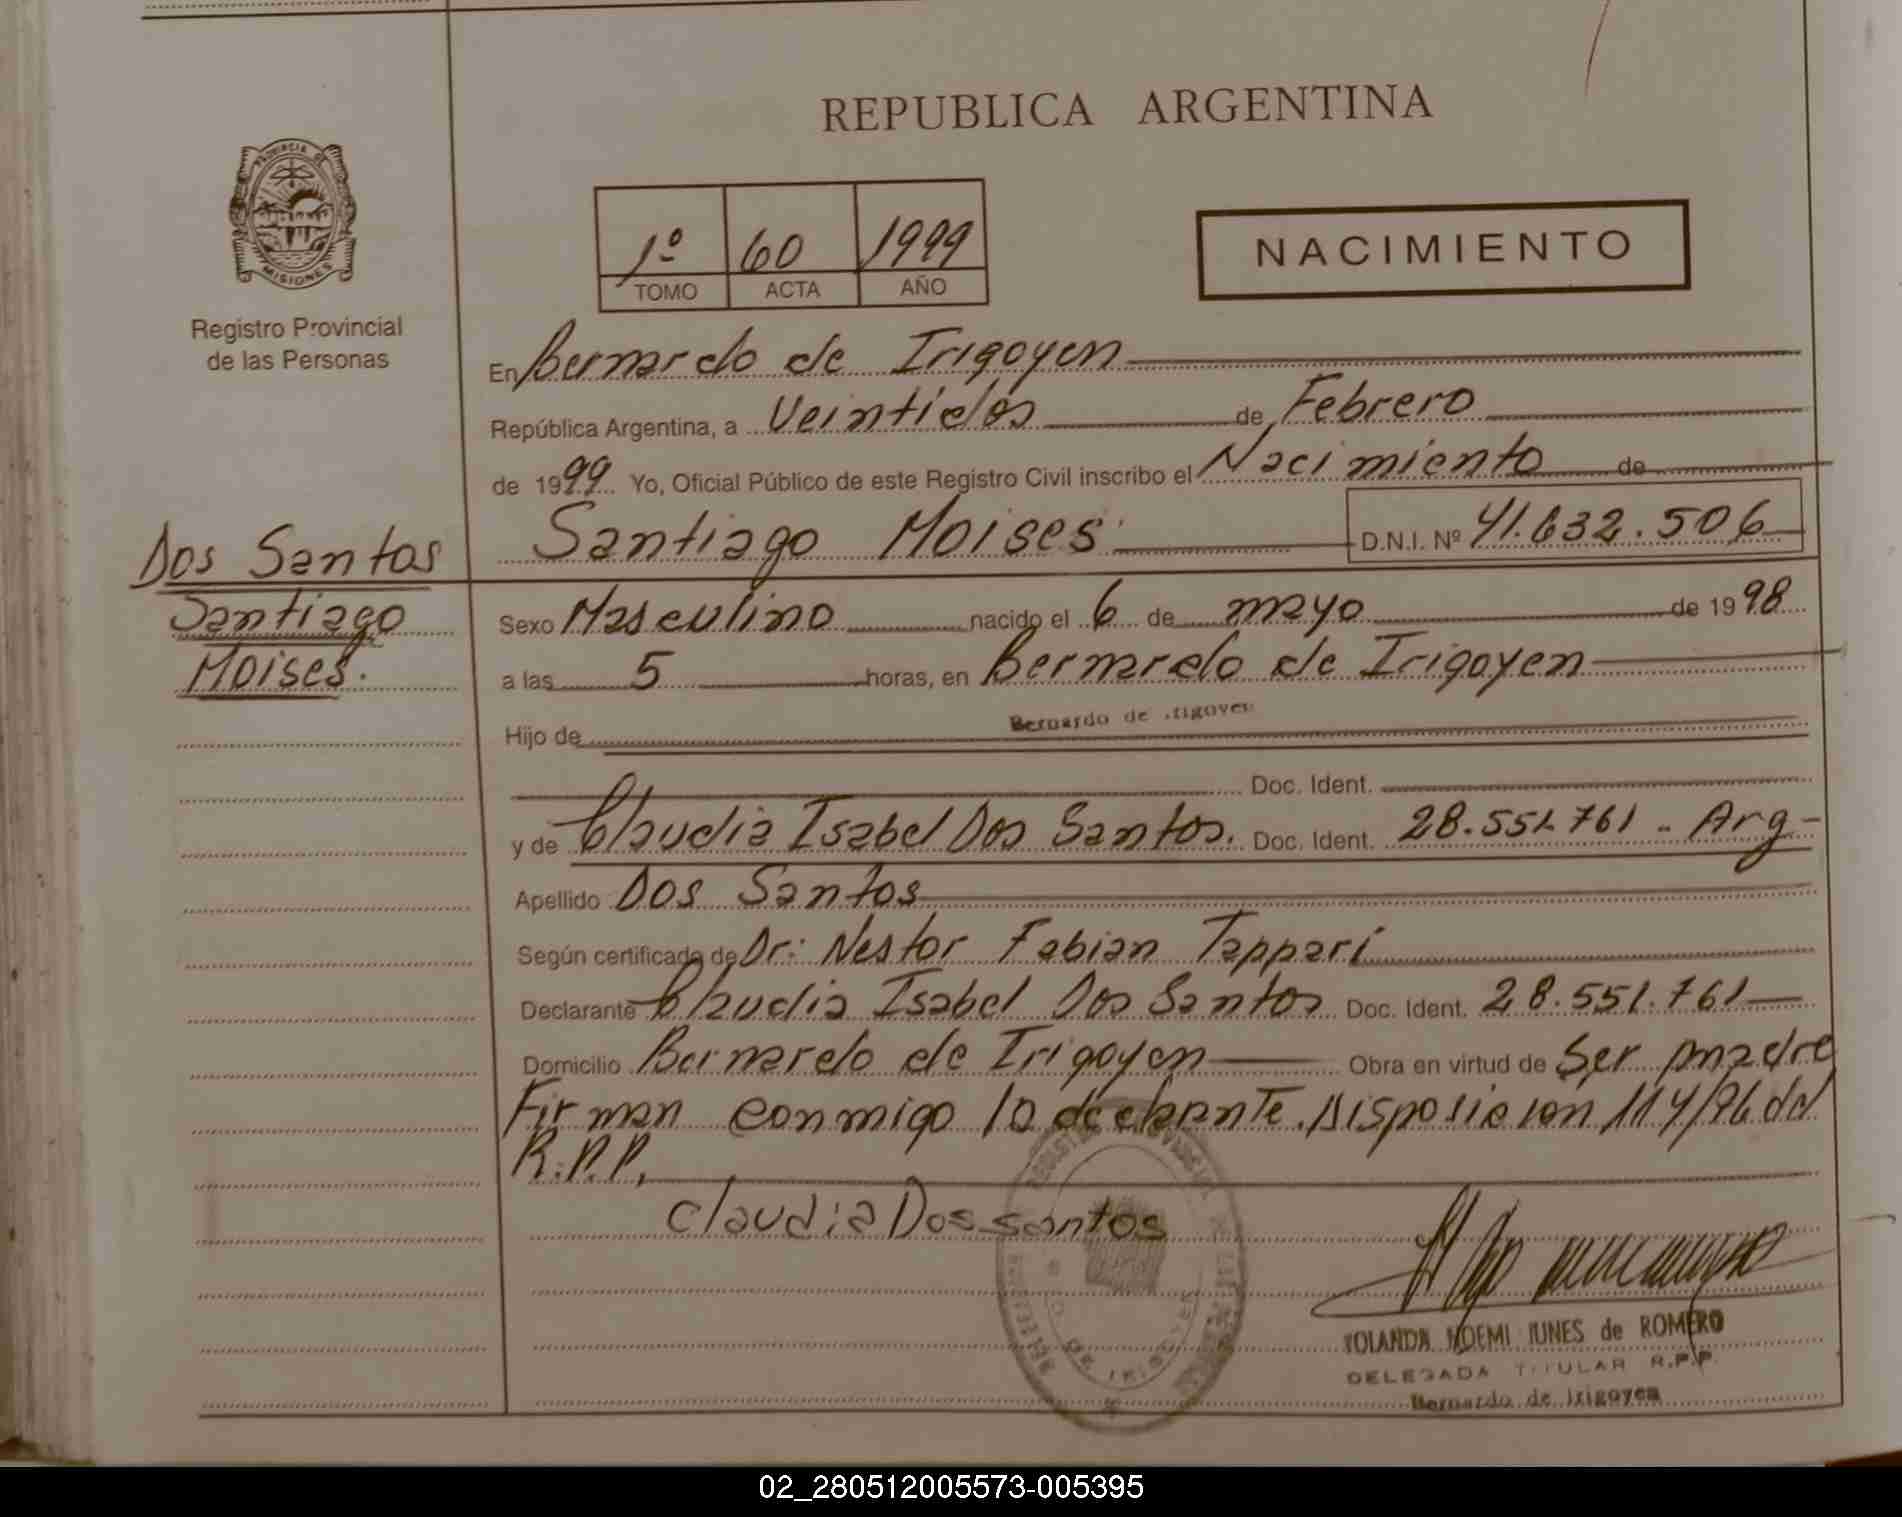 REPUBLICA ARGENTINA
PROVINCIA DE
MISIONES
Registro Provincial
de las Personas
1º 60 1999
TOMO ACTA AÑO
NACIMIENTO
En Bernardo de Irigoyen
República Argentina, a Veintidós de Febrero
de 1999 Yo, Oficial Público de este Registro Civil inscribo el Nacimiento de
Santiago Moises D.N.I. Nº 41.632.506
Dos Santos
Santiago
Moises.
Sexo Masculino nacido el 6 de mayo de 1998
a las 5 horas, en Bernardo de Irigoyen
Bernardo de Irigoyen
Hijo de
Doc. Ident.
y de Claudia Isabel Dos Santos. Doc. Ident. 28.551.761 - Arg-
Apellido Dos Santos
Según certificado de Dr: Nestor Fabian Tappari
Declarante Claudia Isabel Dos Santos Doc. Ident. 28.551.761
Domicilio Bernardo de Irigoyen Obra en virtud de Ser madre
Firman conmigo la declarante. Disposicion 114/96 del
R.P.P.
Claudia Dos santos
YOLANDA NOEMI de ROMERO
DELEGADA TITULAR R.P.P.
Bernardo de Irigoyen
02_280512005573-005395